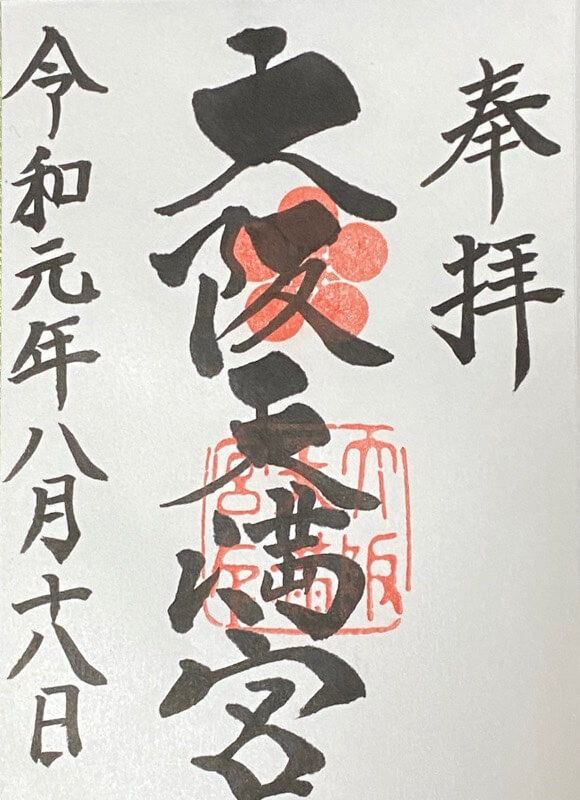 奉拝
大阪天満宮
大阪
天満
宮印
令和元年八月十八日